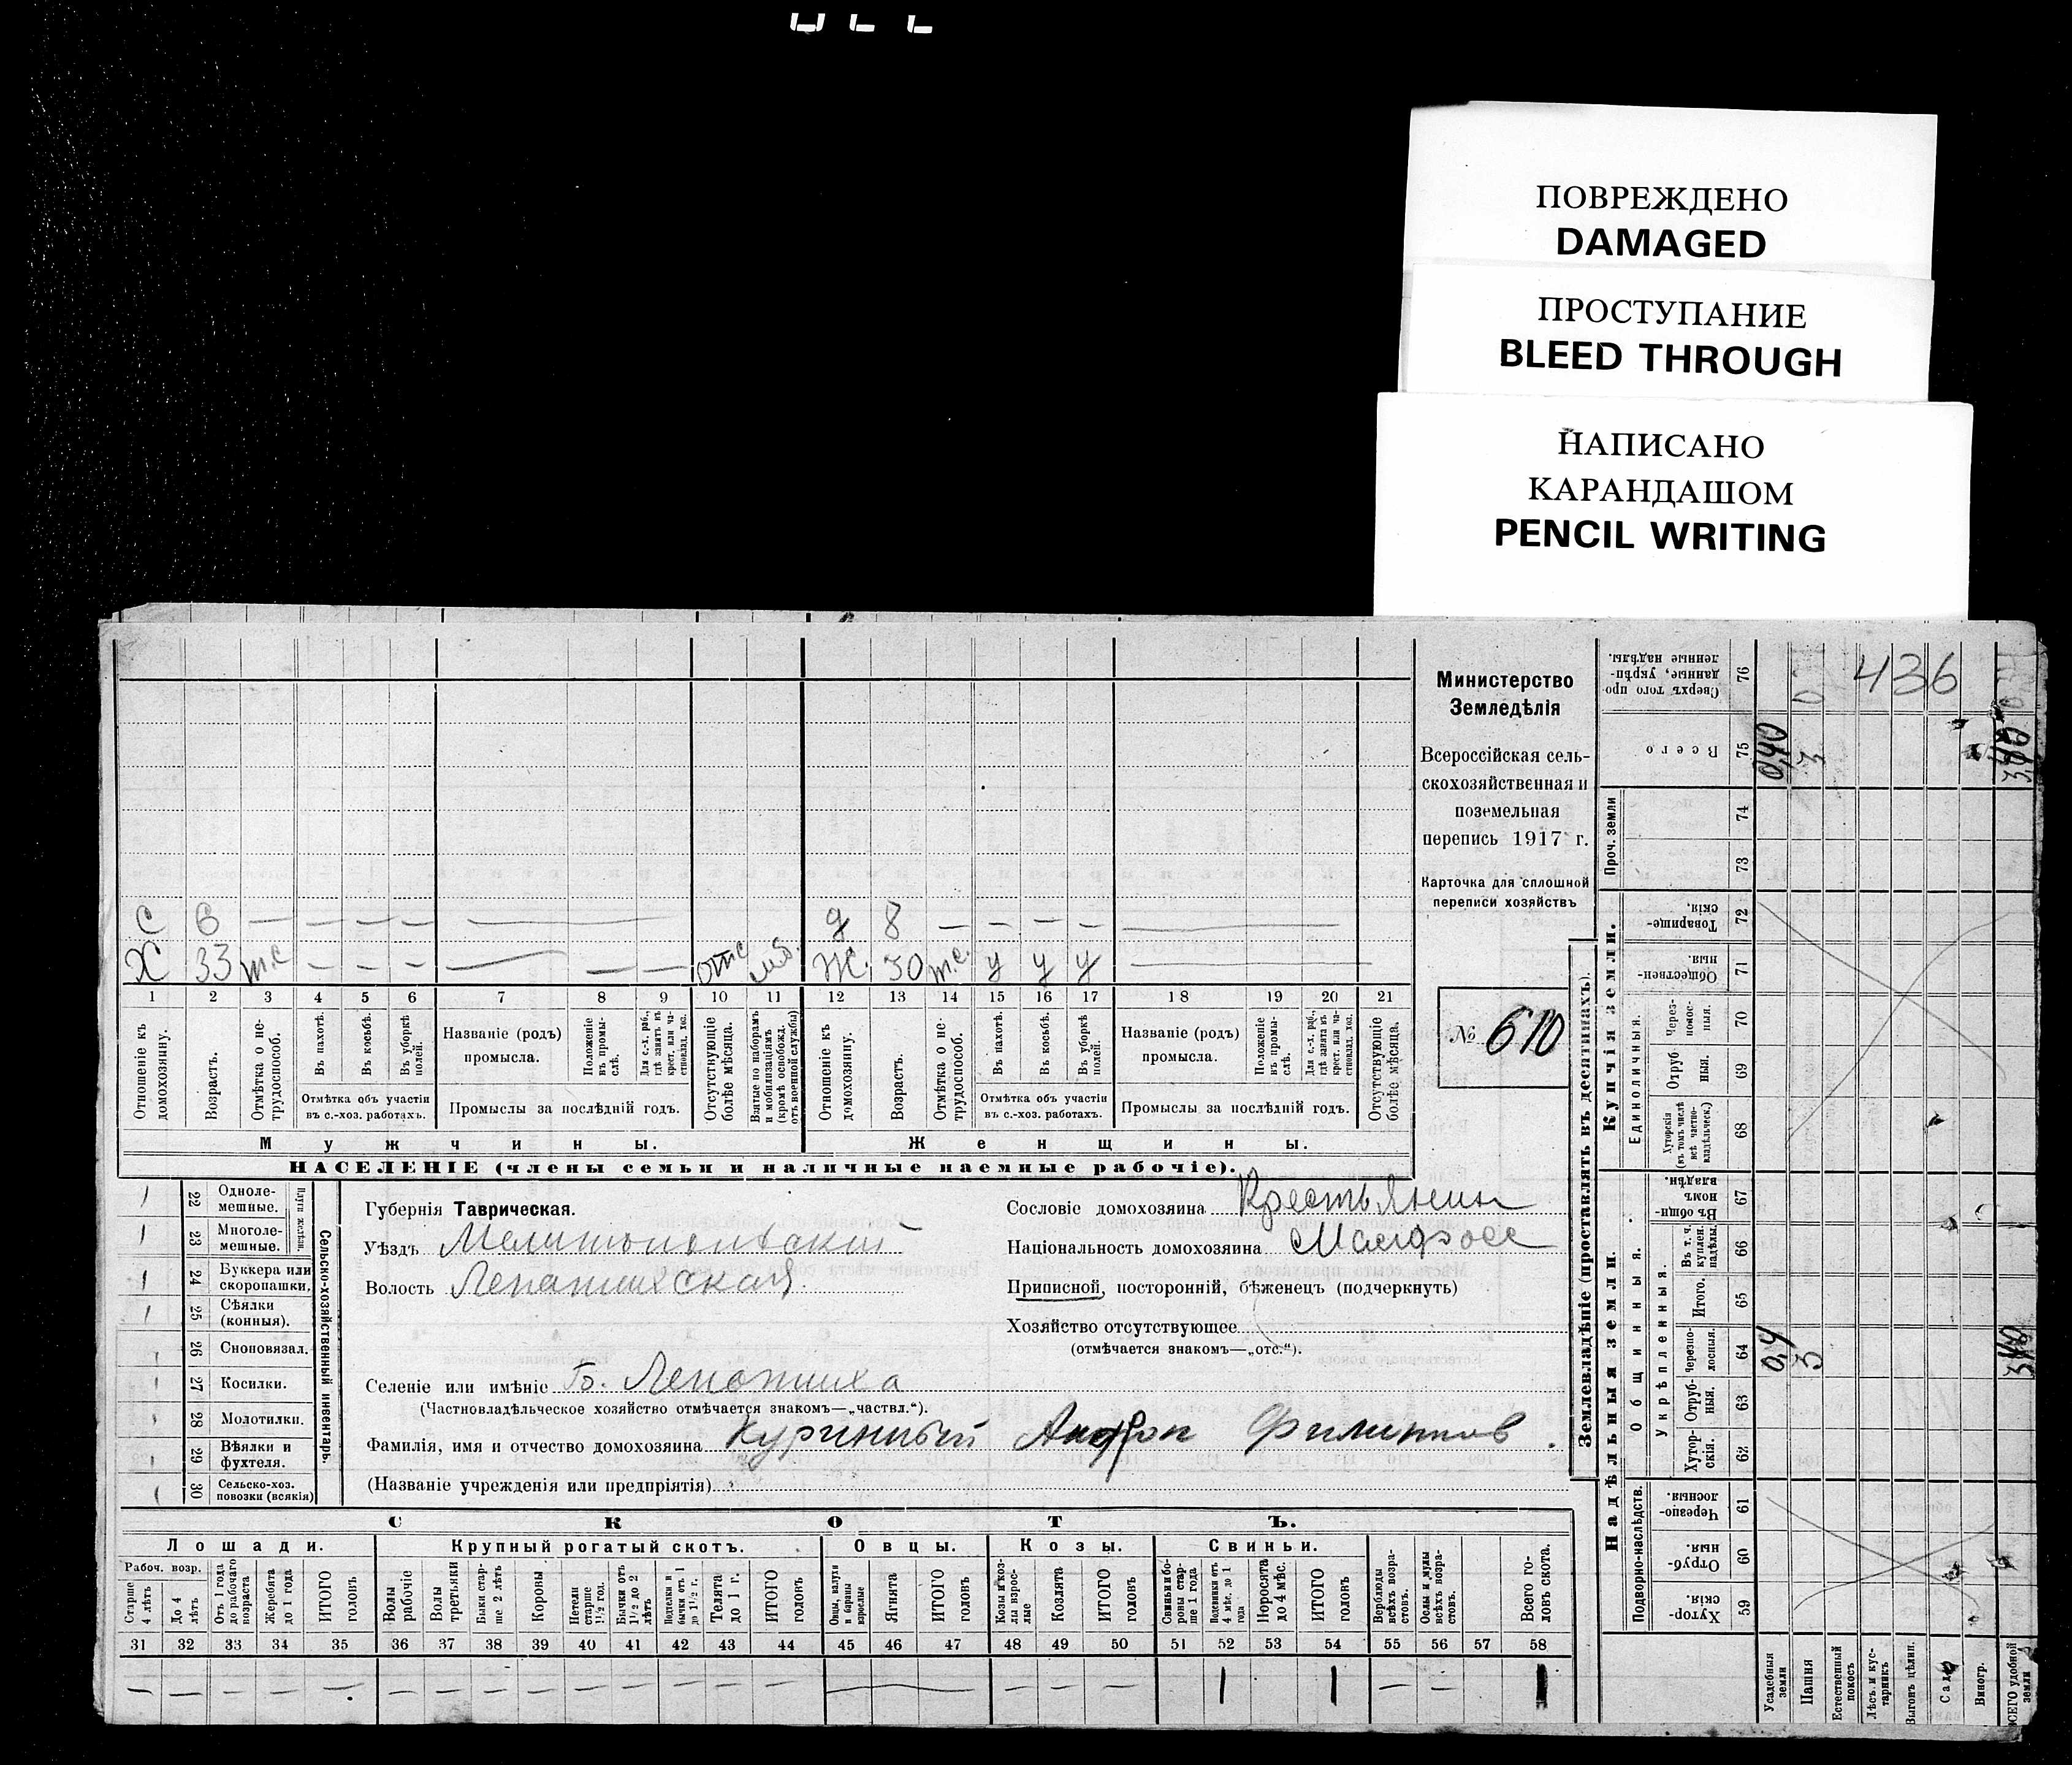 ПОВРЕЖДЕНО
DAMAGED
ПРОСТУПАНИЕ
BLEED THROUGH
НАПИСАНО
КАРАНДАШОМ
PENCIL WRITING
Министерство
Земледѣлія
Всероссійская сель-
скохозяйственная и
поземельная
перепись 1917 г.
Карточка для сплошной
переписи хозяйствъ
№ 610
С 6 — — — — — д 8 — — — — —
Х 33 т.с — — — — — — отс Ж. 30 т.с. у у у —
1 2 3 4 5 6 7 8 9 10 11 12 13 14 15 16 17 18 19 20 21
Отношеніе къ домохозяину.
Возрастъ.
Отмѣтка о не-трудоспособ.
Въ пахотѣ.
Въ косьбѣ.
Въ уборкѣ полей.
Названіе (родъ) промысла.
Положеніе въ промы-слѣ.
Для с.-х. раб., гдѣ занятъ въ крест. или ча-стновлад. хоз.
Отсутствующіе болѣе мѣсяца.
Взятые по наборамъ и мобилизаціямъ (кромѣ освобожд. отъ военной службы)
Отношеніе къ домохозяину.
Возрастъ.
Отмѣтка о не-трудоспособ.
Въ пахотѣ.
Въ косьбѣ.
Въ уборкѣ полей.
Названіе (родъ) промысла.
Положеніе въ промы-слѣ.
Для с.-х. раб., гдѣ занятъ въ крест. или ча-стновлад. хоз.
Отсутствующіе болѣе мѣсяца.
Отмѣтка объ участіи въ с.-хоз. работахъ.
Промыслы за послѣдній годъ.
Отмѣтка объ участіи въ с.-хоз. работахъ.
Промыслы за послѣдній годъ.
Мужчины. Женщины.
НАСЕЛЕНІЕ (члены семьи и наличные наемные рабочіе).
Сельско-хозяйственный инвентарь.
Плуги желѣзн.
22 Одноле-мешные.
23 Многоле-мешные.
24 Буккера или скоропашки.
25 Сѣялки (конныя).
26 Сноповязал.
27 Косилки.
28 Молотилки.
29 Вѣялки и фухтеля.
30 Сельско-хоз. повозки (всякія)
Губернія Таврическая.
Уѣздъ Мелитопольский
Волость Лепатихская
Селеніе или имѣніе Б. Лепатиха
(Частновладѣльческое хозяйство отмѣчается знакомъ—„частвл.“).
Фамилія, имя и отчество домохозяина Куринный Андрон Филиппов.
(Названіе учрежденія или предпріятія)
Сословіе домохозяина Крестьянин
Національность домохозяина Малоросс
Приписной, посторонній, бѣженецъ (подчеркнуть)
Хозяйство отсутствующее
(отмѣчается знакомъ—„отс.“).
СКОТЪ.
Лошади. Крупный рогатый скотъ. Овцы. Козы. Свиньи.
Рабоч. возр.
Старше 4 лѣтъ
До 4 лѣтъ
Отъ 1 года до рабочаго возраста
Жеребята до 1 года
ИТОГО головъ
Волы рабочіе
Волы третьяки
Быки стар-ше 2 лѣтъ
Коровы
Нетели старше 1½ год.
Бычки отъ 1½ до 2 лѣтъ
Подтелки и бычки отъ 1 до 1½ г.
Телята до 1 г.
ИТОГО головъ
Овцы, валухи и бараны взрослые
Ягнята
ИТОГО головъ
Козы и коз-лы взрос-лые
Козлята
ИТОГО головъ
Свиньи и бо-ровы стар-ше 1 года
Подсвинки отъ 4 мѣс. до 1 года
Поросята до 4 мѣс.
ИТОГО головъ
Верблюды всѣхъ возра-стовъ.
Ослы и мулы всѣхъ возра-стовъ.
Всего го-ловъ скота.
31 32 33 34 35 36 37 38 39 40 41 42 43 44 45 46 47 48 49 50 51 52 53 54 55 56 57 58
— — — — — — — — — — — — — — — — — — 1 — 1 — — 1
Землевладѣніе (проставлять въ десятинахъ).
Купчія земли.
Надѣльныя земли.
Сверхъ того про-данные, укрѣп-ленные надѣлы. 76 436
Всего 75 0,40 3
Проч. земли 74 73
Товарище-скія. 72
Обществен-ныя. 71
Единоличныя.
Через-полос-ныя. 70
Отруб-ныя. 69
Хуторскія (въ томъ числѣ всѣ частно-владѣльческ.) 68
Общинныя.
Въ общи-нномъ владѣн. 67
Укрѣпленныя.
Въ т. ч. куплен. надѣлы. 66
Итого. 65
Черезпо-лосныя. 64 0,4 3
Отруб-ныя. 63
Хутор-скія. 62
Подворно-наслѣдств.
Черезпо-лосныя 61
Отруб-ныя. 60
Хутор-скія. 59
Усадебныя земли
Пашня
Естественный покосъ
Лѣсъ и кус-тарникъ
Выгонъ цѣлин.
Сады
Виногр.
ВСЕГО удобной земли